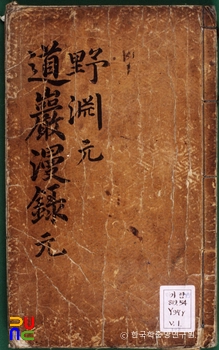 野淵 元
道巖漫錄 元
V.1
© 한국학중앙연구원